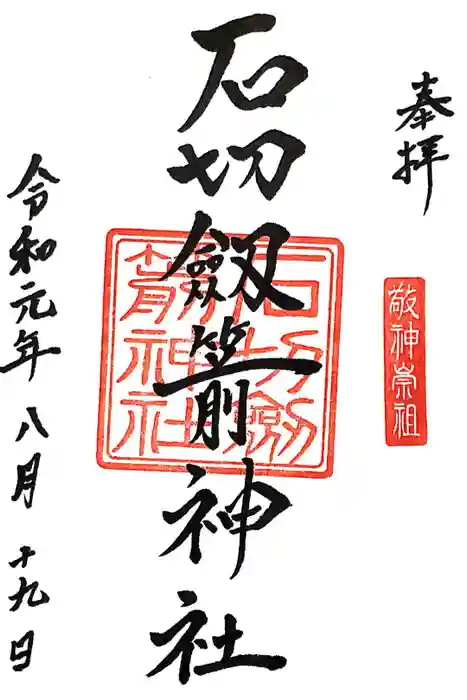 奉拝
敬神崇祖
石切劔箭神社
石切劔箭神社
令和元年八月十九日